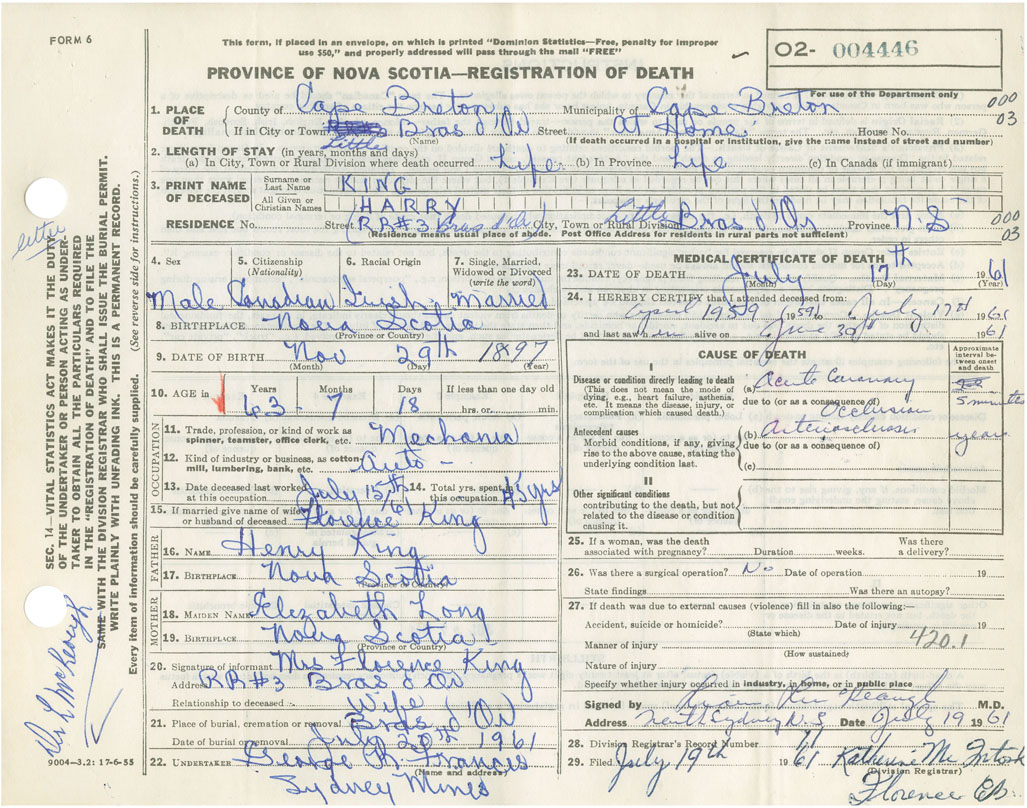 FORM 6
This form, if placed in an envelope, on which is printed "Dominion Statistics—Free, penalty for improper
use $50," and properly addressed will pass through the mail "FREE"
O2- 004446
For use of the Department only
PROVINCE OF NOVA SCOTIA—REGISTRATION OF DEATH
1. PLACE OF DEATH
County of Cape Breton Municipality of Cape Breton
000
03
If in City or Town Little Bras d'Or Street At Home House No.
(Name) (If death occurred in a hospital or Institution, give the name instead of street and number)
2. LENGTH OF STAY (in years, months and days)
(a) In City, Town or Rural Division where death occurred Life (b) In Province Life (c) In Canada (if immigrant)
3. PRINT NAME OF DECEASED
Surname or Last Name KING
All Given or Christian Names HARRY
RESIDENCE No. Street (RR#3 Bras d'Or) City, Town or Rural Division Little Bras d'Or Province N.S
000
03
(Residence means usual place of abode. Post Office Address for residents in rural parts not sufficient)
4. Sex 5. Citizenship (Nationality) 6. Racial Origin 7. Single, Married, Widowed or Divorced (write the word)
Male Canadian Irish Married
8. BIRTHPLACE Nova Scotia
(Province or Country)
9. DATE OF BIRTH Nov 29th 1897
(Month) (Day) (Year)
10. AGE in Years Months Days If less than one day old
63 - 7 18 hrs. or min.
OCCUPATION
11. Trade, profession, or kind of work as spinner, teamster, office clerk, etc. Mechanic
12. Kind of industry or business, as cotton-mill, lumbering, bank, etc. Auto -
13. Date deceased last worked at this occupation July 15th/61 14. Total yrs. spent in this occupation 45 yrs
15. If married give name of wife or husband of deceased Florence King
FATHER
16. NAME Henry King
17. BIRTHPLACE Nova Scotia
(Province or Country)
MOTHER
18. MAIDEN NAME Elezabeth Long
19. BIRTHPLACE Nova Scotia
(Province or Country)
20. Signature of informant Mrs Florence King
Address RR#3 Bras d'Or
Relationship to deceased Wife
21. Place of burial, cremation or removal Bras d'Or
Date of burial or removal July 20th 1961
22. UNDERTAKER George R. Francis
(Name and address)
Sydney Mines
MEDICAL CERTIFICATE OF DEATH
23. DATE OF DEATH July 17th 1961
(Month) (Day) (Year)
24. I HEREBY CERTIFY that I attended deceased from:
April 1959 1959 to July 17st 1961
and last saw him alive on June 30 1961
CAUSE OF DEATH
Approximate interval between onset and death
I
Disease or condition directly leading to death
(This does not mean the mode of dying, e.g., heart failure, asthenia, etc. It means the disease, injury, or complication which caused death.)
(a) Acute Coronary
due to (or as a consequence of)
Occlusion
5 minutes
Antecedent causes
Morbid conditions, if any, giving rise to the above cause, stating the underlying condition last.
(b) Arteriosclerosis
years
due to (or as a consequence of)
(c)
II
Other significant conditions
contributing to the death, but not related to the disease or condition causing it.
25. If a woman, was the death associated with pregnancy? Duration weeks. Was there a delivery?
26. Was there a surgical operation? No Date of operation 19
State findings Was there an autopsy?
27. If death was due to external causes (violence) fill in also the following:—
Accident, suicide or homicide? Date of injury 19
(State which)
Manner of injury 420.1
(How sustained)
Nature of injury
Specify whether injury occurred in industry, in home, or in public place
Signed by M.D.
Address North Sydney N.S Date July 19 1961
28. Division Registrar's Record Number 77
29. Filed July 19th 1961 Katherine McIntosh
(Division Registrar)
Florence CB.
SEC. 14—VITAL STATISTICS ACT MAKES IT THE DUTY
OF THE UNDERTAKER OR PERSON ACTING AS UNDER-
TAKER TO OBTAIN ALL THE PARTICULARS REQUIRED
IN THE "REGISTRATION OF DEATH" AND TO FILE THE
SAME WITH THE DIVISION REGISTRAR WHO SHALL ISSUE THE BURIAL PERMIT.
WRITE PLAINLY WITH UNFADING INK. THIS IS A PERMANENT RECORD.
Every item of information should be carefully supplied. (See reverse side for instructions.)
9004—3.2: 17-6-55